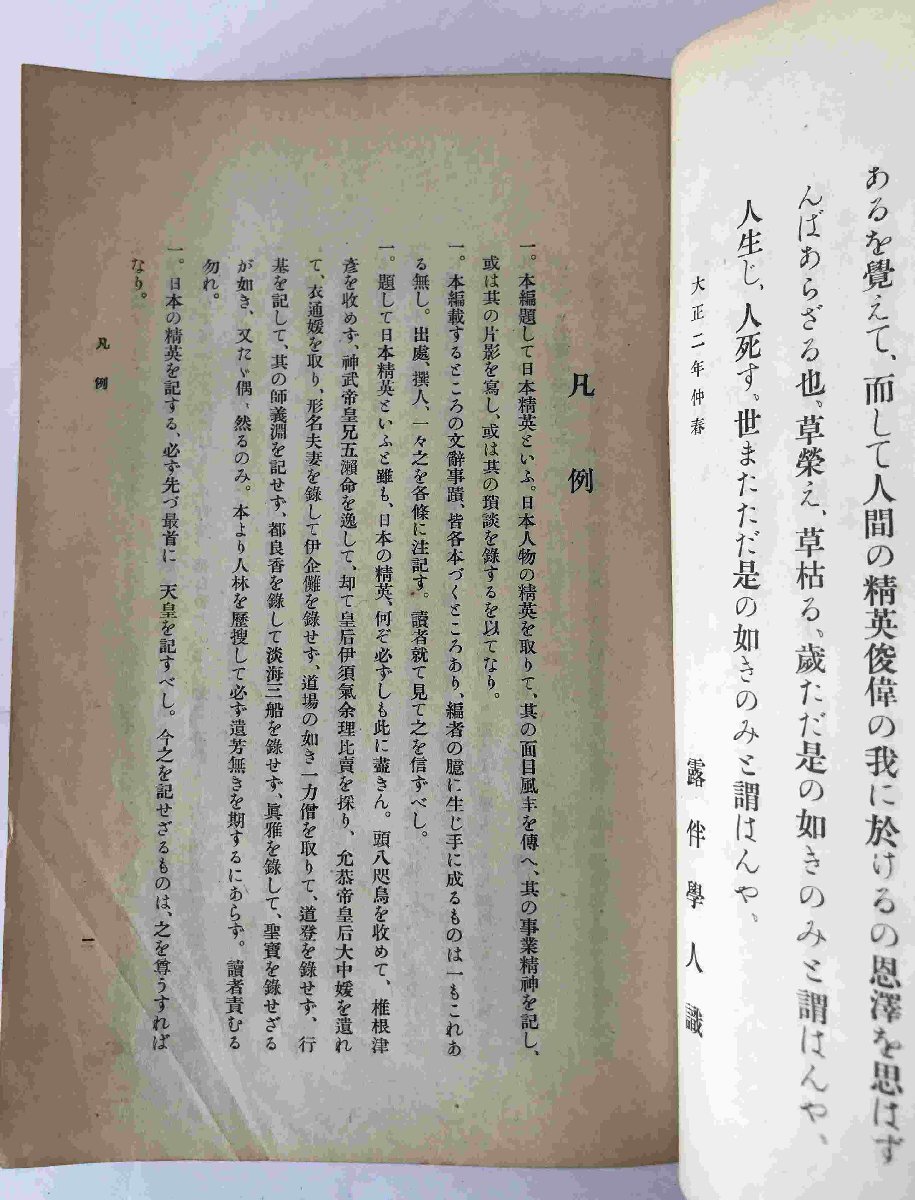 あるを覺えて、而して人間の精英俊偉の我に於けるの恩澤を思はず
んばあらざる也。草榮え、草枯る、歲ただ是の如きのみと謂はんや、
人生じ、人死す。世まただだ是の如きのみと謂はんや、
大正二年仲春
露伴學人識
凡例
一。本編題して日本精英といふ。日本人物の精英を取りて、其の面目風丰を傳へ、其の事業精神を記し、
或は其の片影を寫し、或は其の瑣談を錄するを以てなり。
一。本編載するところの文辭事蹟、皆各本づくところあり、編者の臆に生じ手に成るものは一もこれあ
る無し。出處、撰人、一々之を各條に注記す。讀者就て見て之を信ずべし。
一。題して日本精英といふと雖も、日本の精英、何ぞ必ずしも此に盡きん。頭八咫烏を收めて、椎根津
彥を收めず、神武帝皇兄五瀨命を逸して、却て皇后伊須氣余理比賣を採り、允恭帝皇后大中媛を遺れ
て、衣通媛を取り、形名夫妻を錄して伊企儺を錄せず、道場の如き一力僧を取りて、道登を錄せず、行
基を記して、其の師義淵を記せず、都良香を錄して淡海三船を錄せず、眞雅を錄して、聖寶を錄せざる
が如き、又たゞ偶〻然るのみ。本より人林を歷搜して必ず遺芳無きを期するにあらず。讀者責むる
勿れ。
一。日本の精英を記する、必ず先づ最首に　天皇を記すべし。今之を記せざるものは、之を尊うすれば
なり。
凡例
一